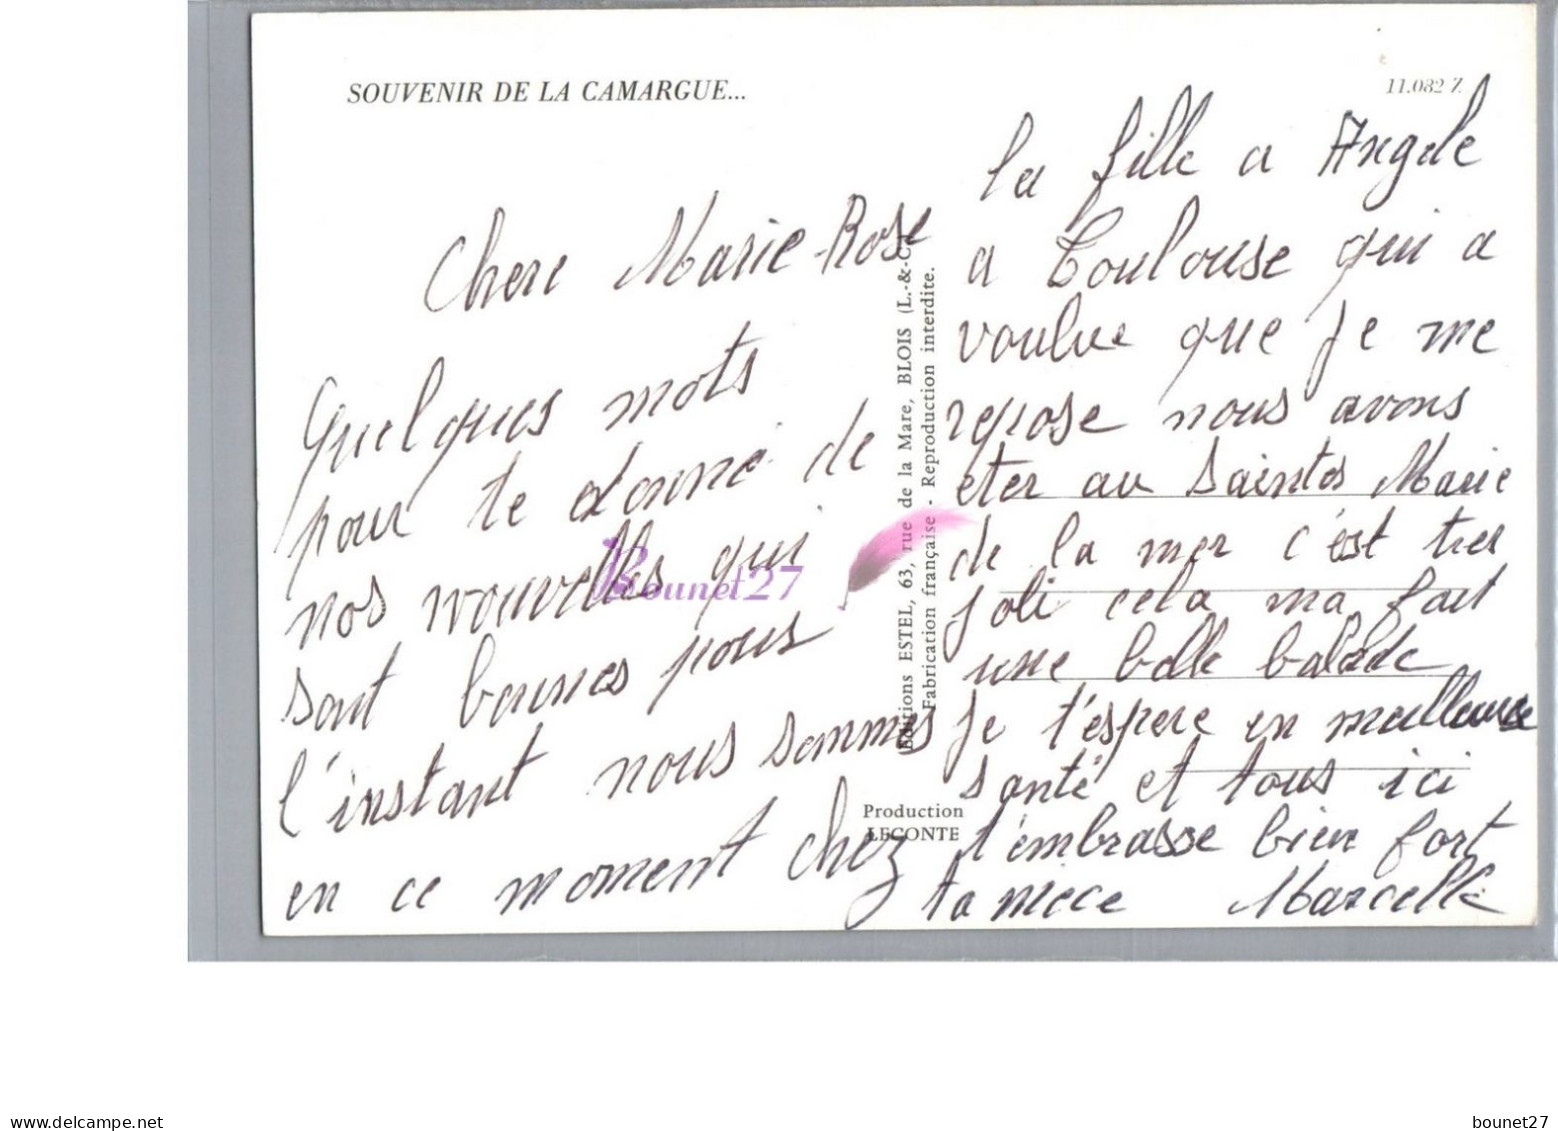 SOUVENIR DE LA CAMARGUE...
11.082 Z
Chere Marie-Rose
quelques mots
pour te donné de
nos nouvelles qui
sont bonnes pour
l'instant nous sommes
en ce moment chez
la fille a Angele
a Toulouse qui a
voulue que je me
repose nous avons
eter au Saintes Marie
de la mer c'est tres
joli cela ma fait
une belle balade
je t'espere en meilleure
santé et tous ici
t'embrasse bien fort
ta niece Marcelle
Editions ESTEL, 63, rue de la Mare, BLOIS (L.-&-C.)
Fabrication française - Reproduction interdite.
Production
LECONTE
Bounet27
www.delcampe.net
bounet27